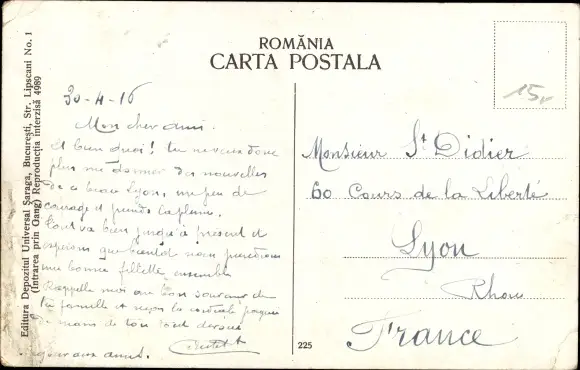 ROMÂNIA
CARTA POSTALA
Editura Depozitul Universal Șaraga, București, Str. Lipscani No. 1
(Intrarea prin Oang) Reproducția interzisă 4989
15
30-4-16
Mon cher ami.
Et bien quoi! tu ne veux donc
plus me donner des nouvelles
de ce beau Lyon, un peu de
courage et prends la plume.
Tout va bien jusqu'à présent et
espérons que bientôt nous
une bonne fillette ensemble
Rappelle moi au bon souvenir de
ta famille et reçois la
de mains de ton
Monsieur St Didier
60 Cours de la Liberté
Lyon
Rhone
France
225